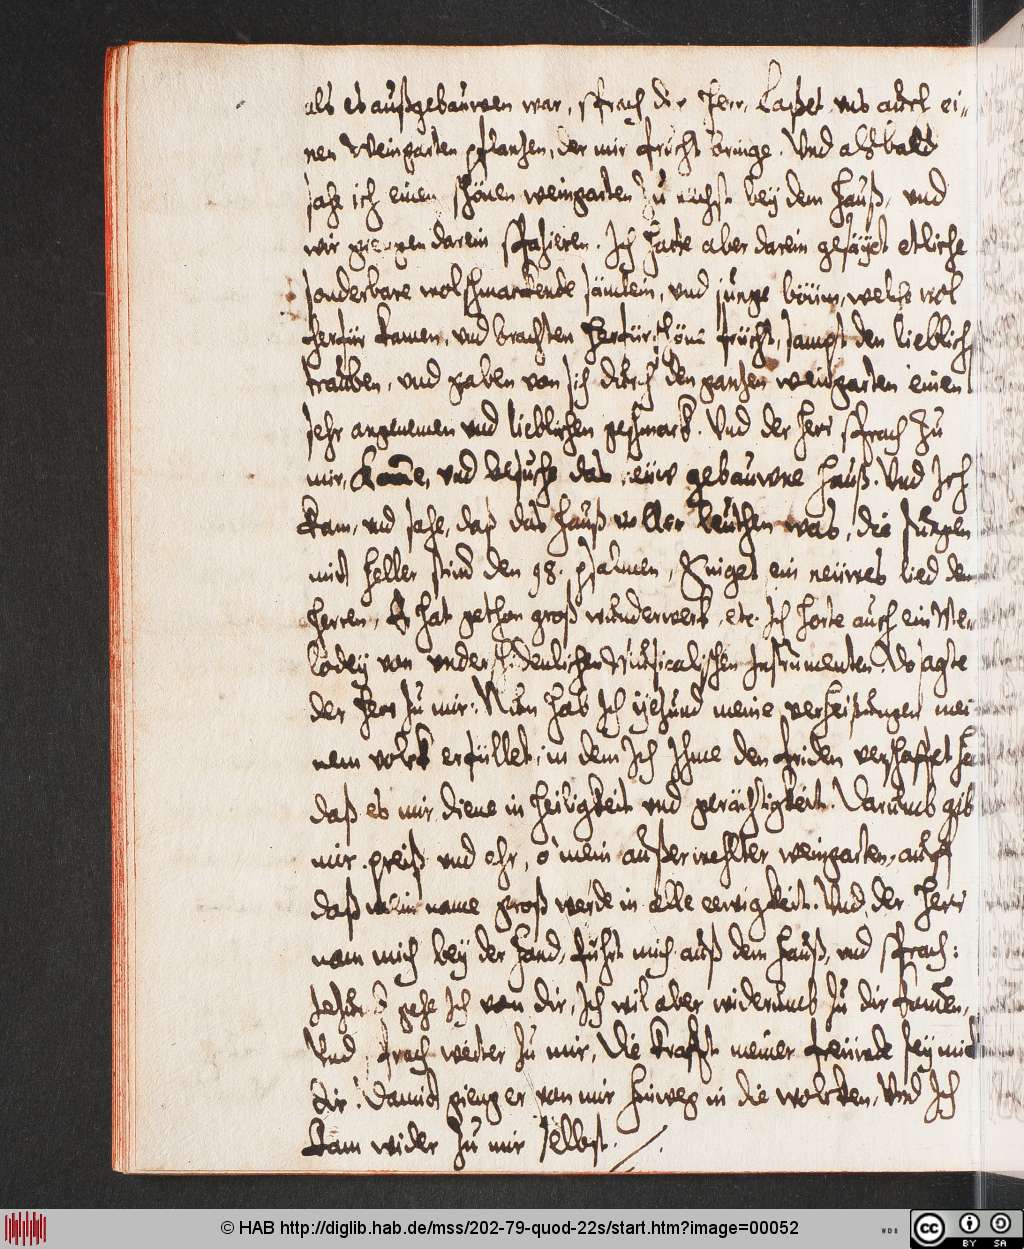 als es außgebauwen war, sprach der Herr, Laßet uns auch ei-
nen Weingarten pflantzen, der mir frücht bringe. Und alßbald
sahe ich einen schönen weingarten zu nechst bey dem Hauß, und
wir giengen darein spatzieren. Ich hatte aber darein gesäyet etliche
sonderbare wolschmackende sämlein, und junge böüm, welche wol
herfür kamen, und brachten herfür schöne frücht, sampt den lieblich
trauben, und gaben von sich durch den gantzen weingarten einen
sehr angenemen und lieblichen geschmack. Und der Herr sprach zu
mir, Komme, und besuche das neüw gebauwne Hauß. Und Ich
kam, und sahe, daß das Hauß voller leuthen was, die sungen
mit heller stim den 98. psalmen, Singet ein neüwes lied dem
Herren, Er hat gethon groß wunderwerk, etc. Ich horte auch ein Me-
lodey von underschidenlichen Musicalischen Instrumenten. Do sagte
der Herr zu mir: Nun hab Ich yetzund meine verheißungen mei
nem volck erfüllet, in dem Ich Ihme den friden verschaffet he
daß es mir diene in heiligkeit und gerächtigkeit. Darumb gib
mir preiß und ehr, o mein außerwehlter weingarten, auff
daß mein name groß werde in alle eewigkeit. Und der Herr
nam mich bey der Hand, führt mich auß dem Hauß, und sprach:
Jetzund gehe Ich von dir, Ich wil aber widerumb zu dir kommen,
Und sprach weiter zu mir, Die krafft meiner freünde sey mit
dir. Damit gieng er von mir hinweg in die wolcken, Und Ich
kam wider zu mir selbst.
© HAB http://diglib.hab.de/mss/202-79-quod-22s/start.htm?image=00052
WDB
CC BY SA